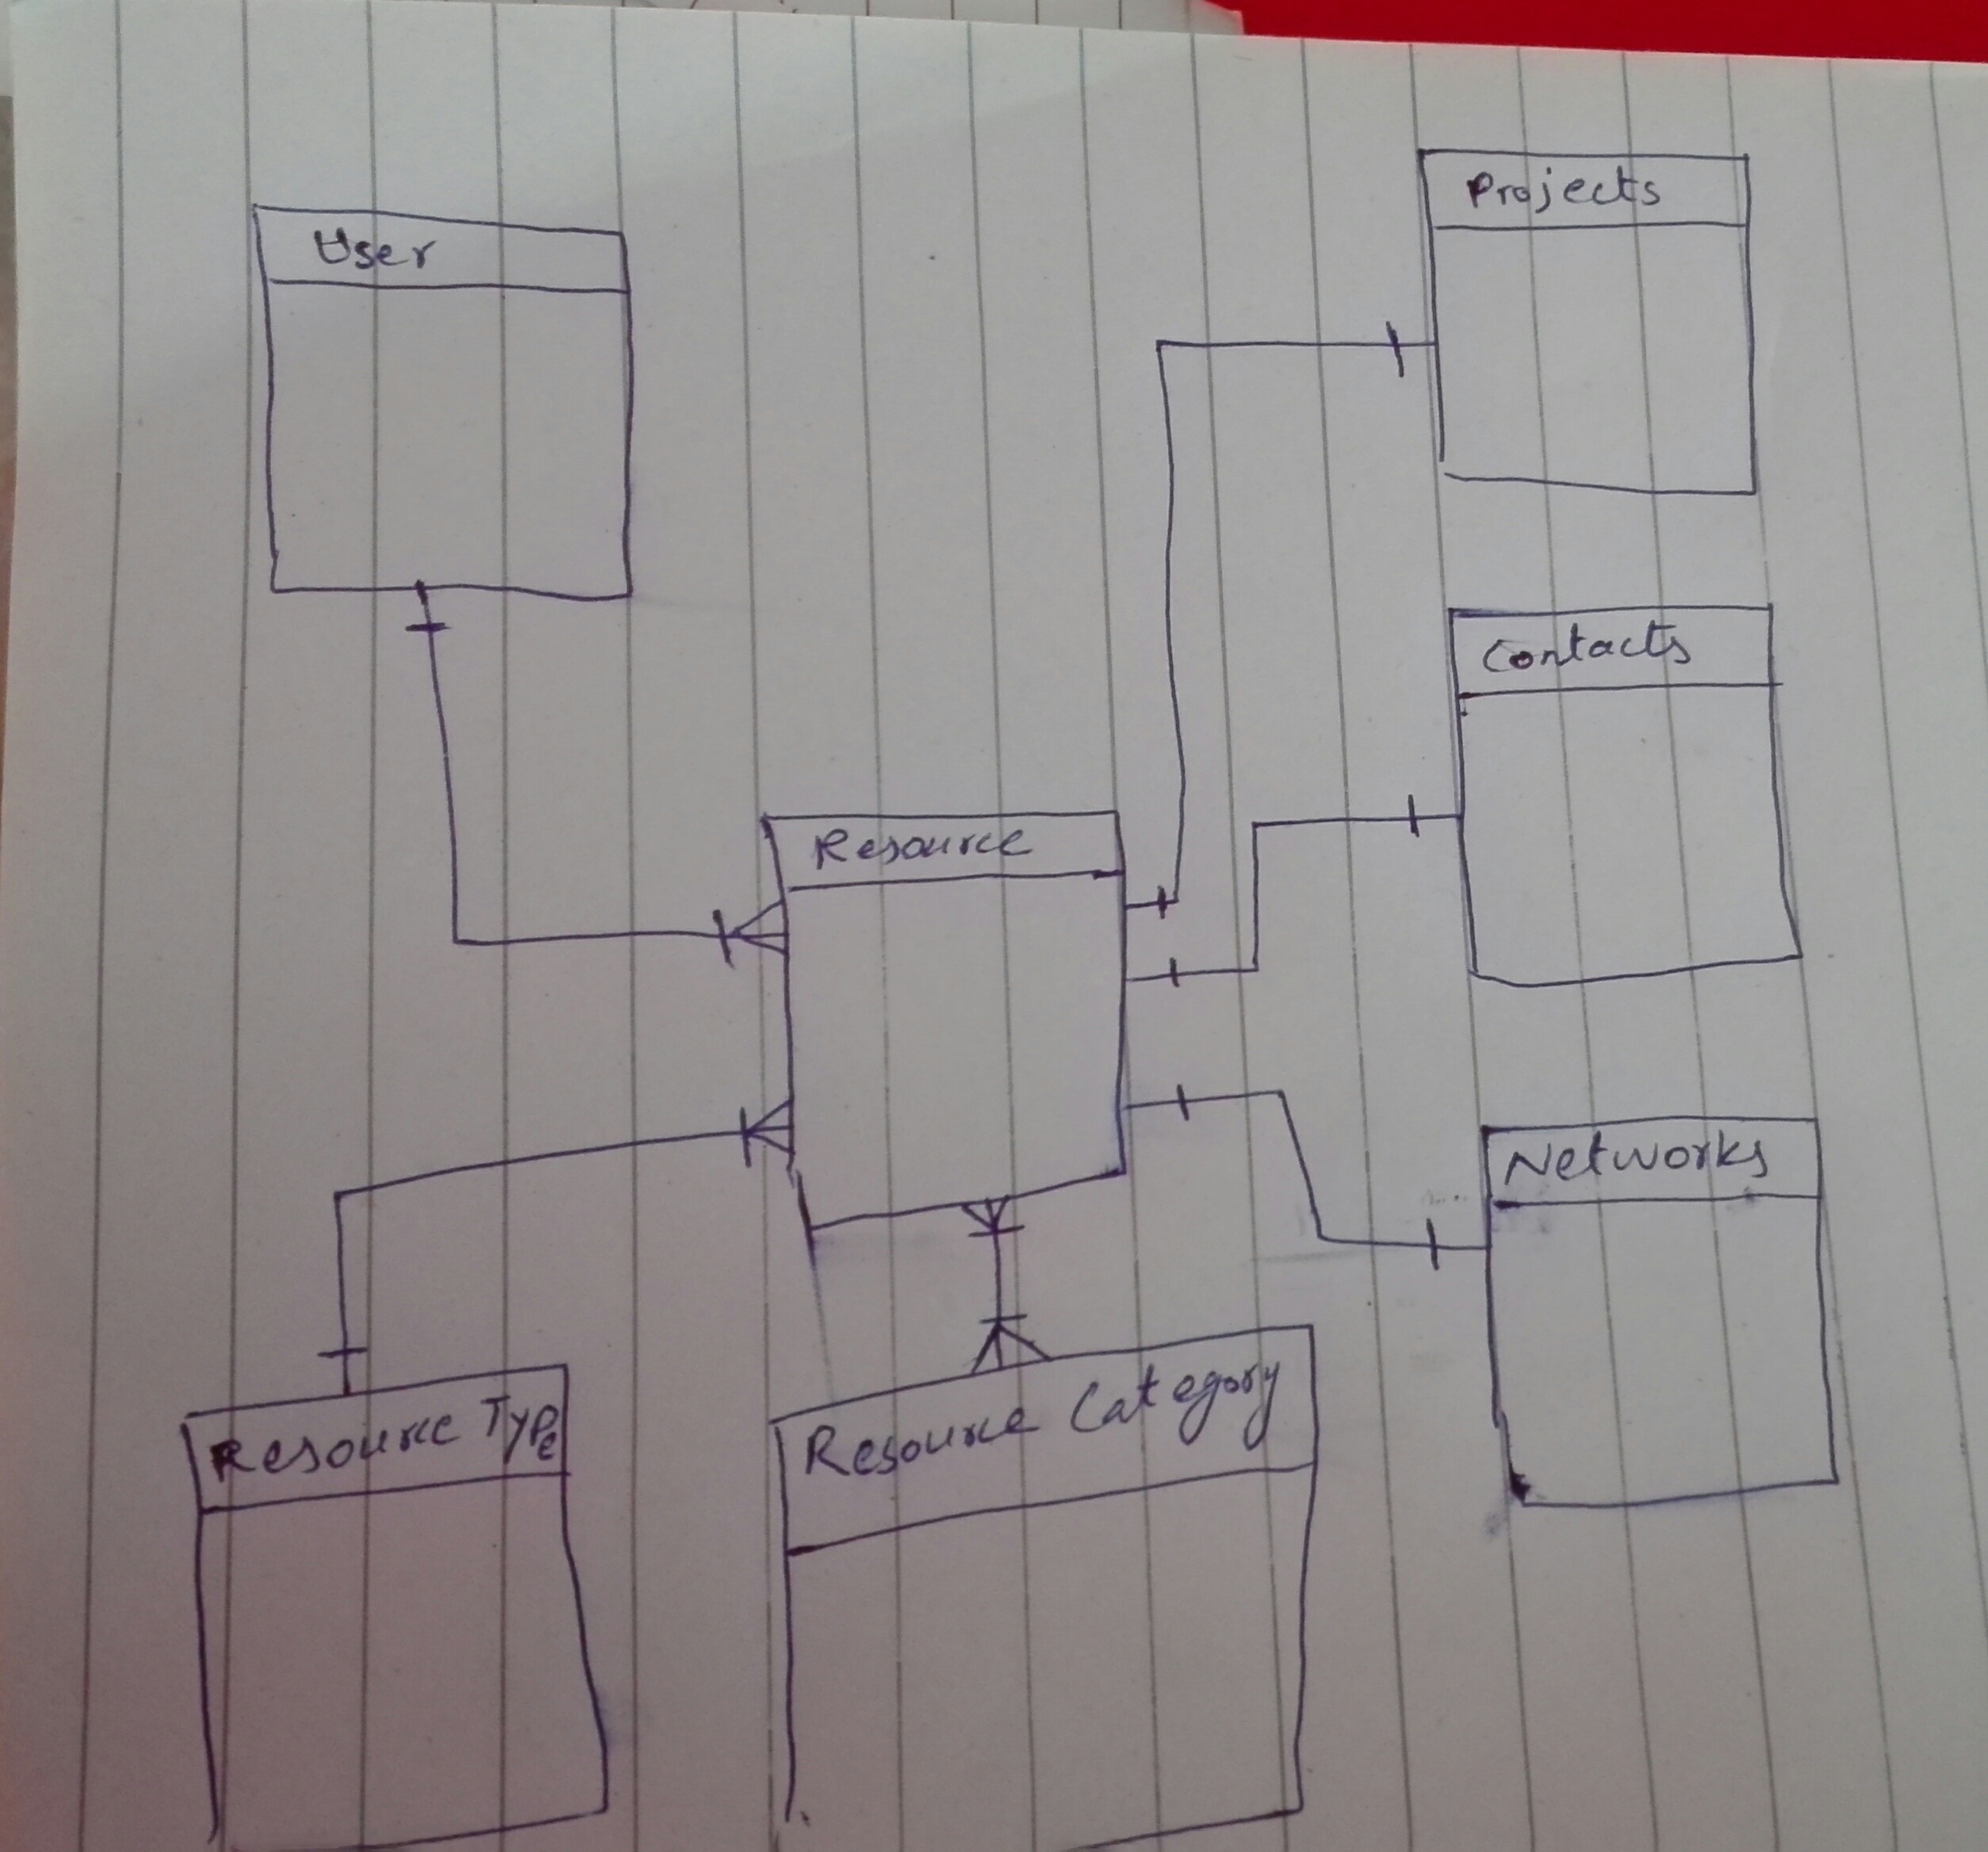 User
Projects
Contacts
Resource
Networks
Resource Type
Resource Category